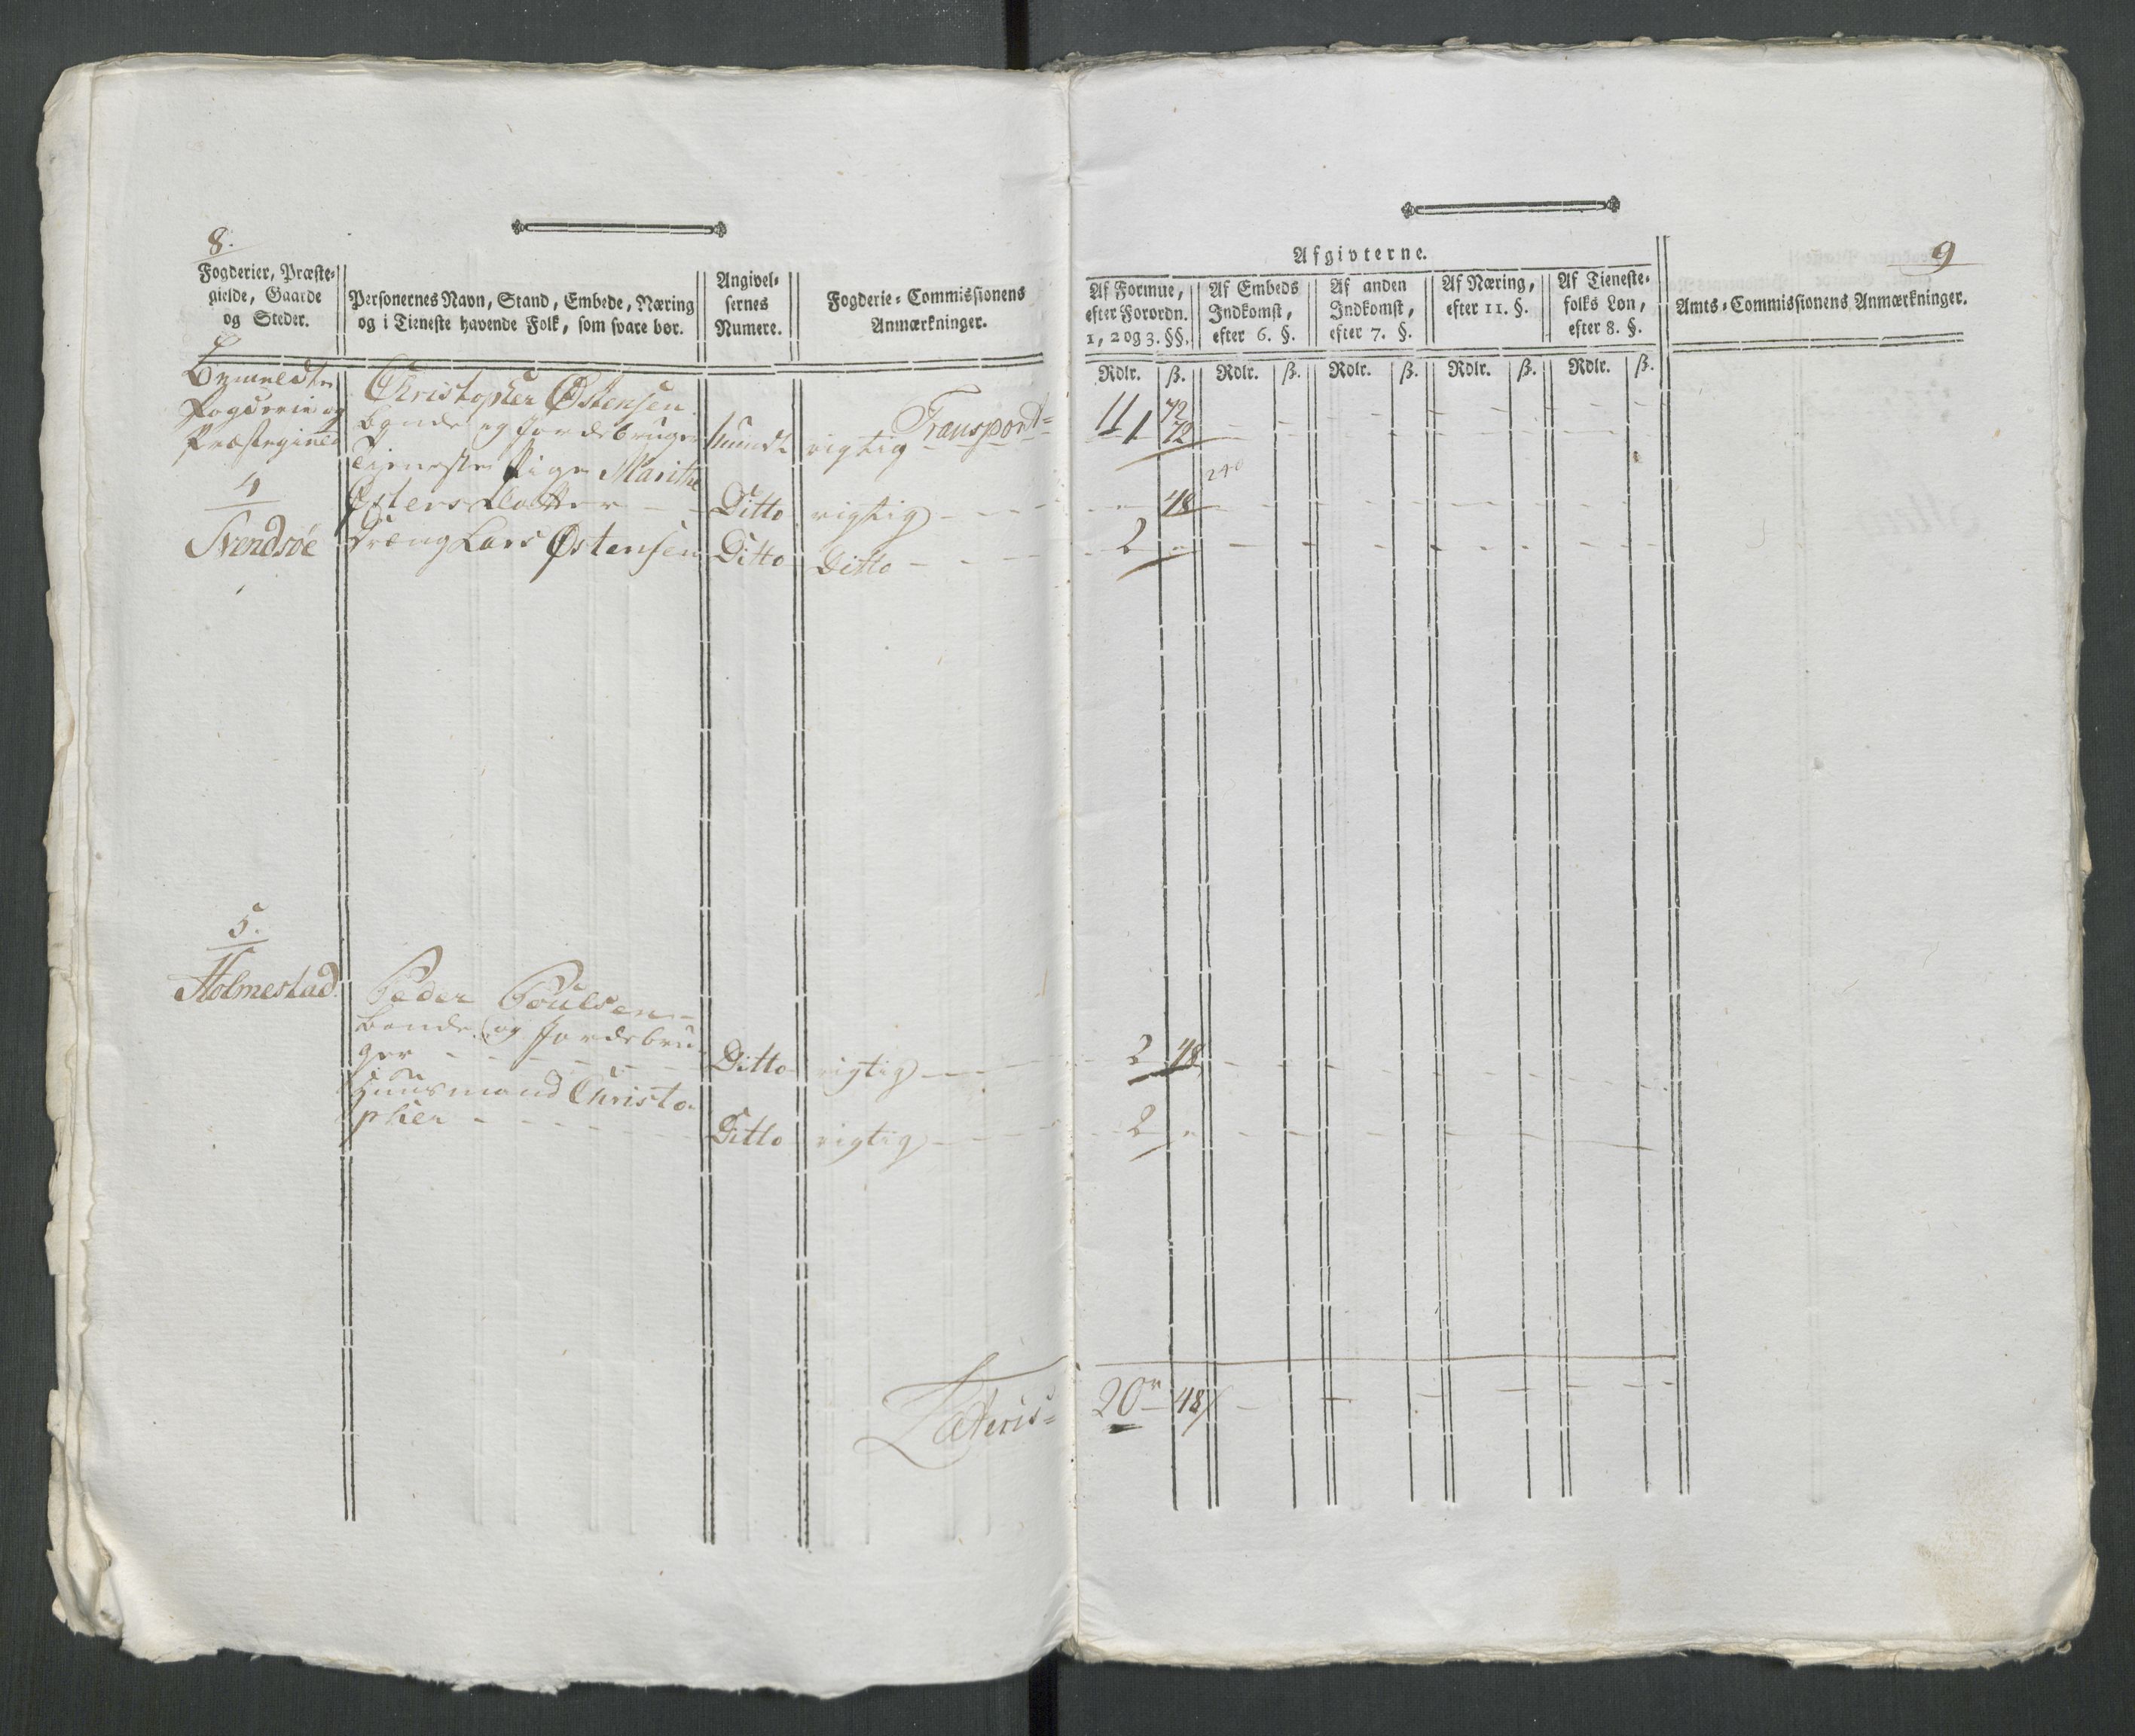 8.
Fogderier, Præste-
gielde, Gaarde
og Steder.
Personernes Navn, Stand, Embede, Næring
og i Tieneste havende Folk, som svare bør.
Angivel-
sernes
Numere.
Fogderie-Commissionens
Anmærkninger.
Bemeldte
Fogderie og
Præstegield
4
Svendsøe
Christopher Østensen
bonde og Jordebruger
Tieneste Pige Marithe
Ostens Datter - -
Dreng Lars Østensen
Ditto
Ditto
Transport=
rigtig
rigtig
Ditto
5.
Holmestad.
Peder Poulsen
bonde og Jordebru-
ger
Huusmand Christo-
pher
Ditto
Ditto
rigtig
rigtig
Lateris=
9
Afgivterne.
Af Formue,
efter Forordn.
1, 2 og 3. §§.
Af Embeds
Indkomst,
efter 6. §.
Af anden
Indkomst,
efter 7. §.
Af Næring,
efter 11. §.
Af Tieneste-
folks Løn,
efter 8. §.
Amts-Commissionens Anmærkninger.
Rdlr. ß. Rdlr. ß. Rdlr. ß. Rdlr. ß. Rdlr. ß.
11 72
1 72
48
2 "
2 48
2 "
20 48